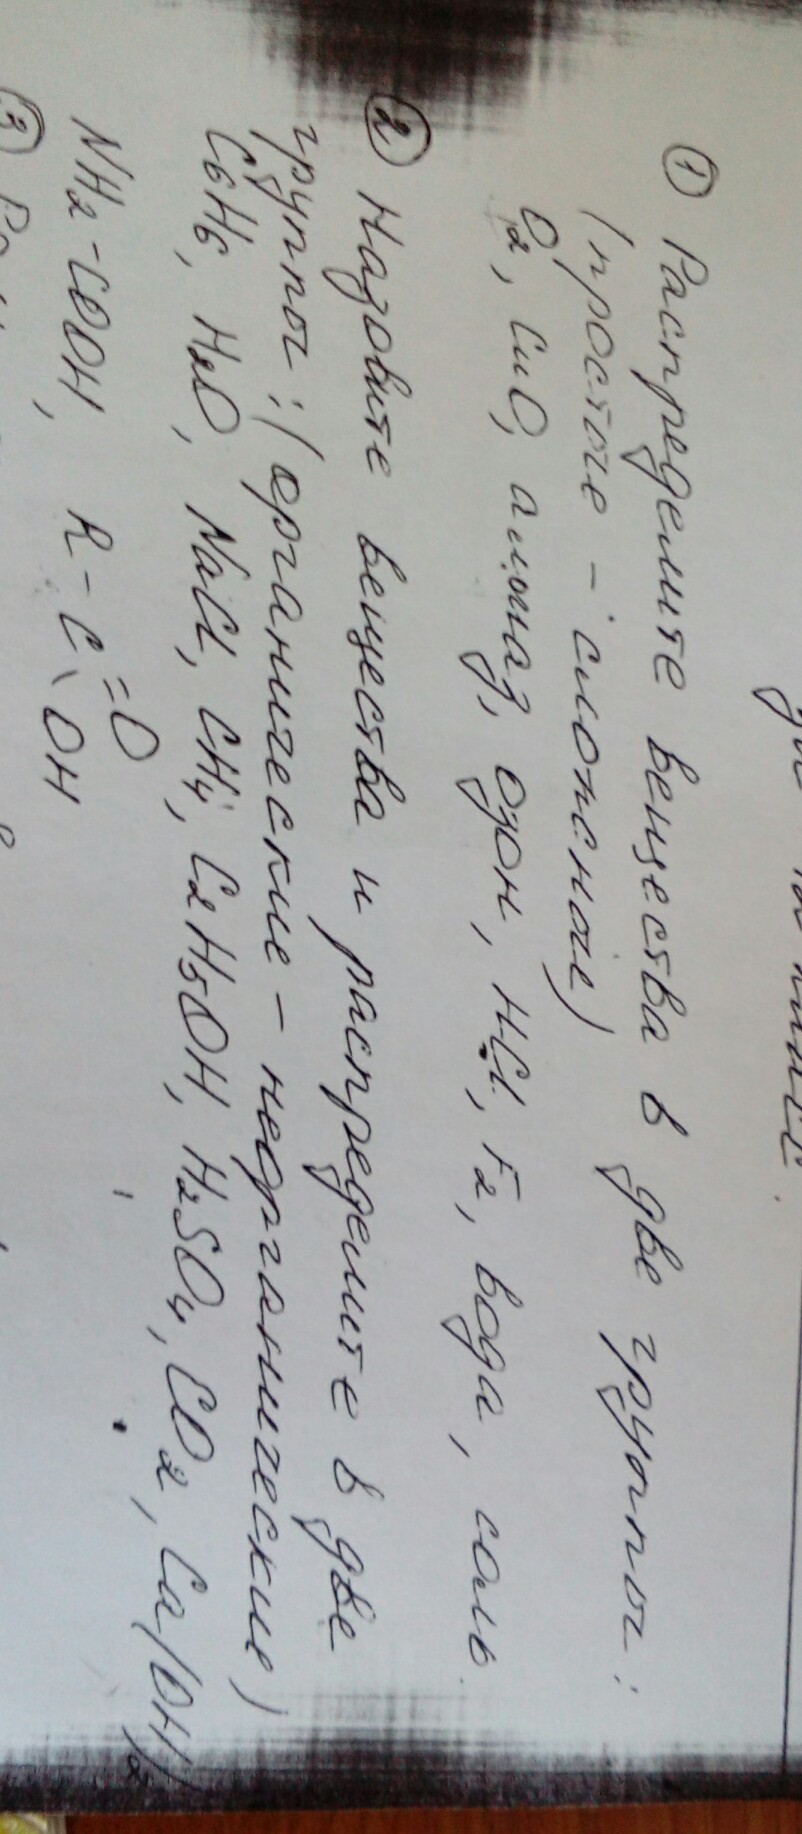 ① Распределите вещества в две группы:
(простые - сложные)
O₂, CuO, алмаз, озон, HCl, F₂, вода, соль.
② Назовите вещества и распределите в две
группы: (органические - неорганические)
C₆H₆, H₂O, NaCl, CH₄, C₂H₅OH, H₂SO₄, CO₂, Ca(OH)₂
NH₂-COOH, R-C=O
\OH
③